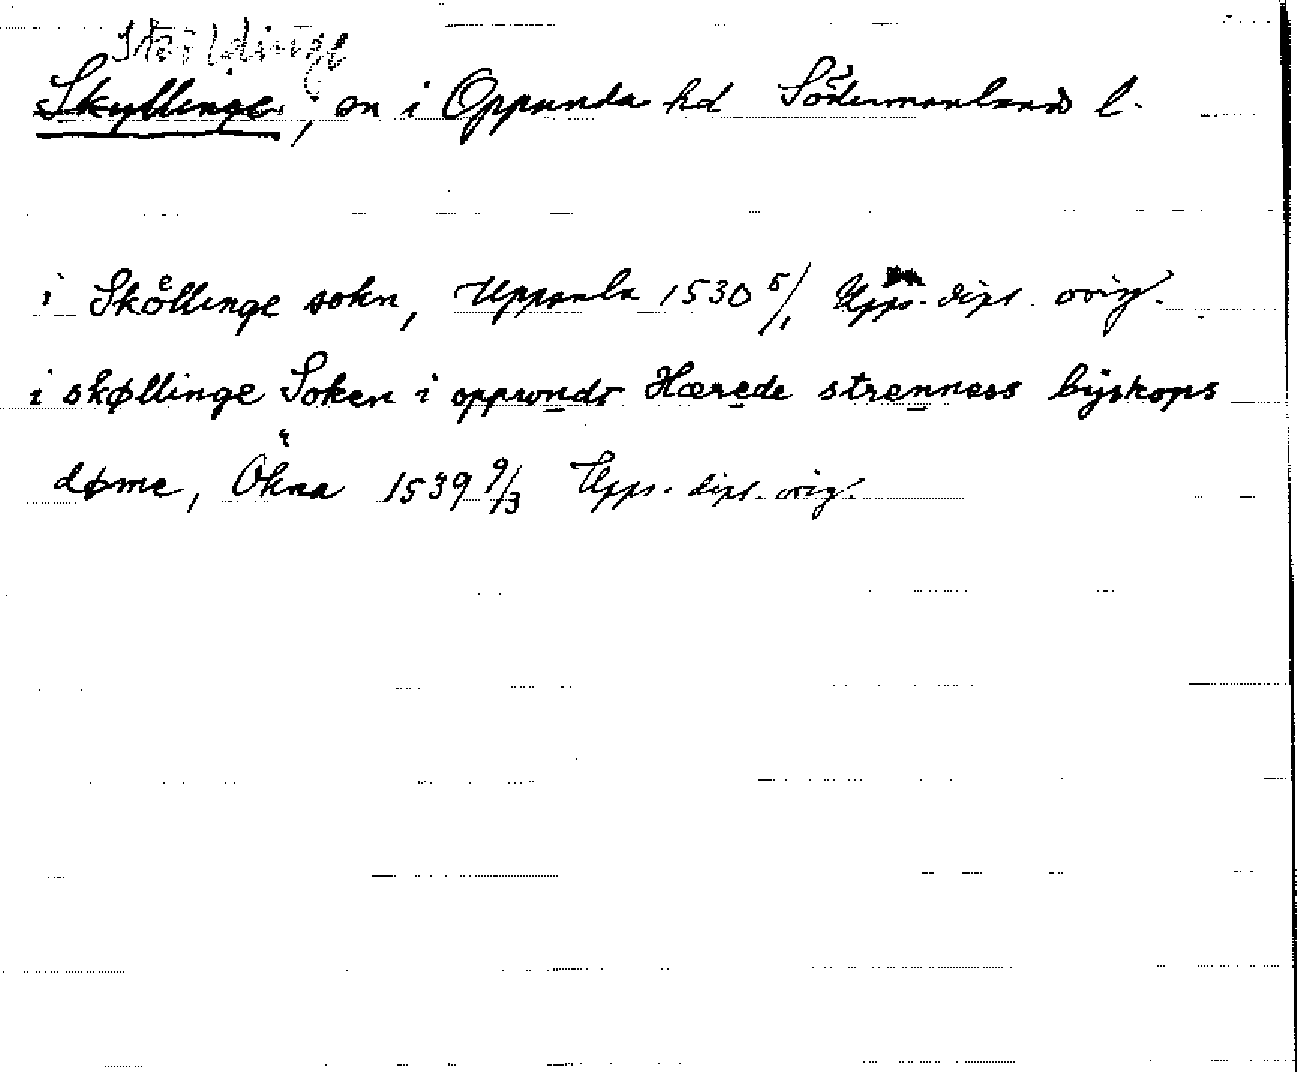 Sköldinge
Skyllinge, sn i Oppunda hd Södermanlands l.
i Skoͤllinge sokn, Uppsala 1530 5/1 Upps. dipl. orig.
i skøllinge Soken i oppwndr Hærede strenness bijskops
døme, Ökna 1539 9/3 Upps. dipl. orig.